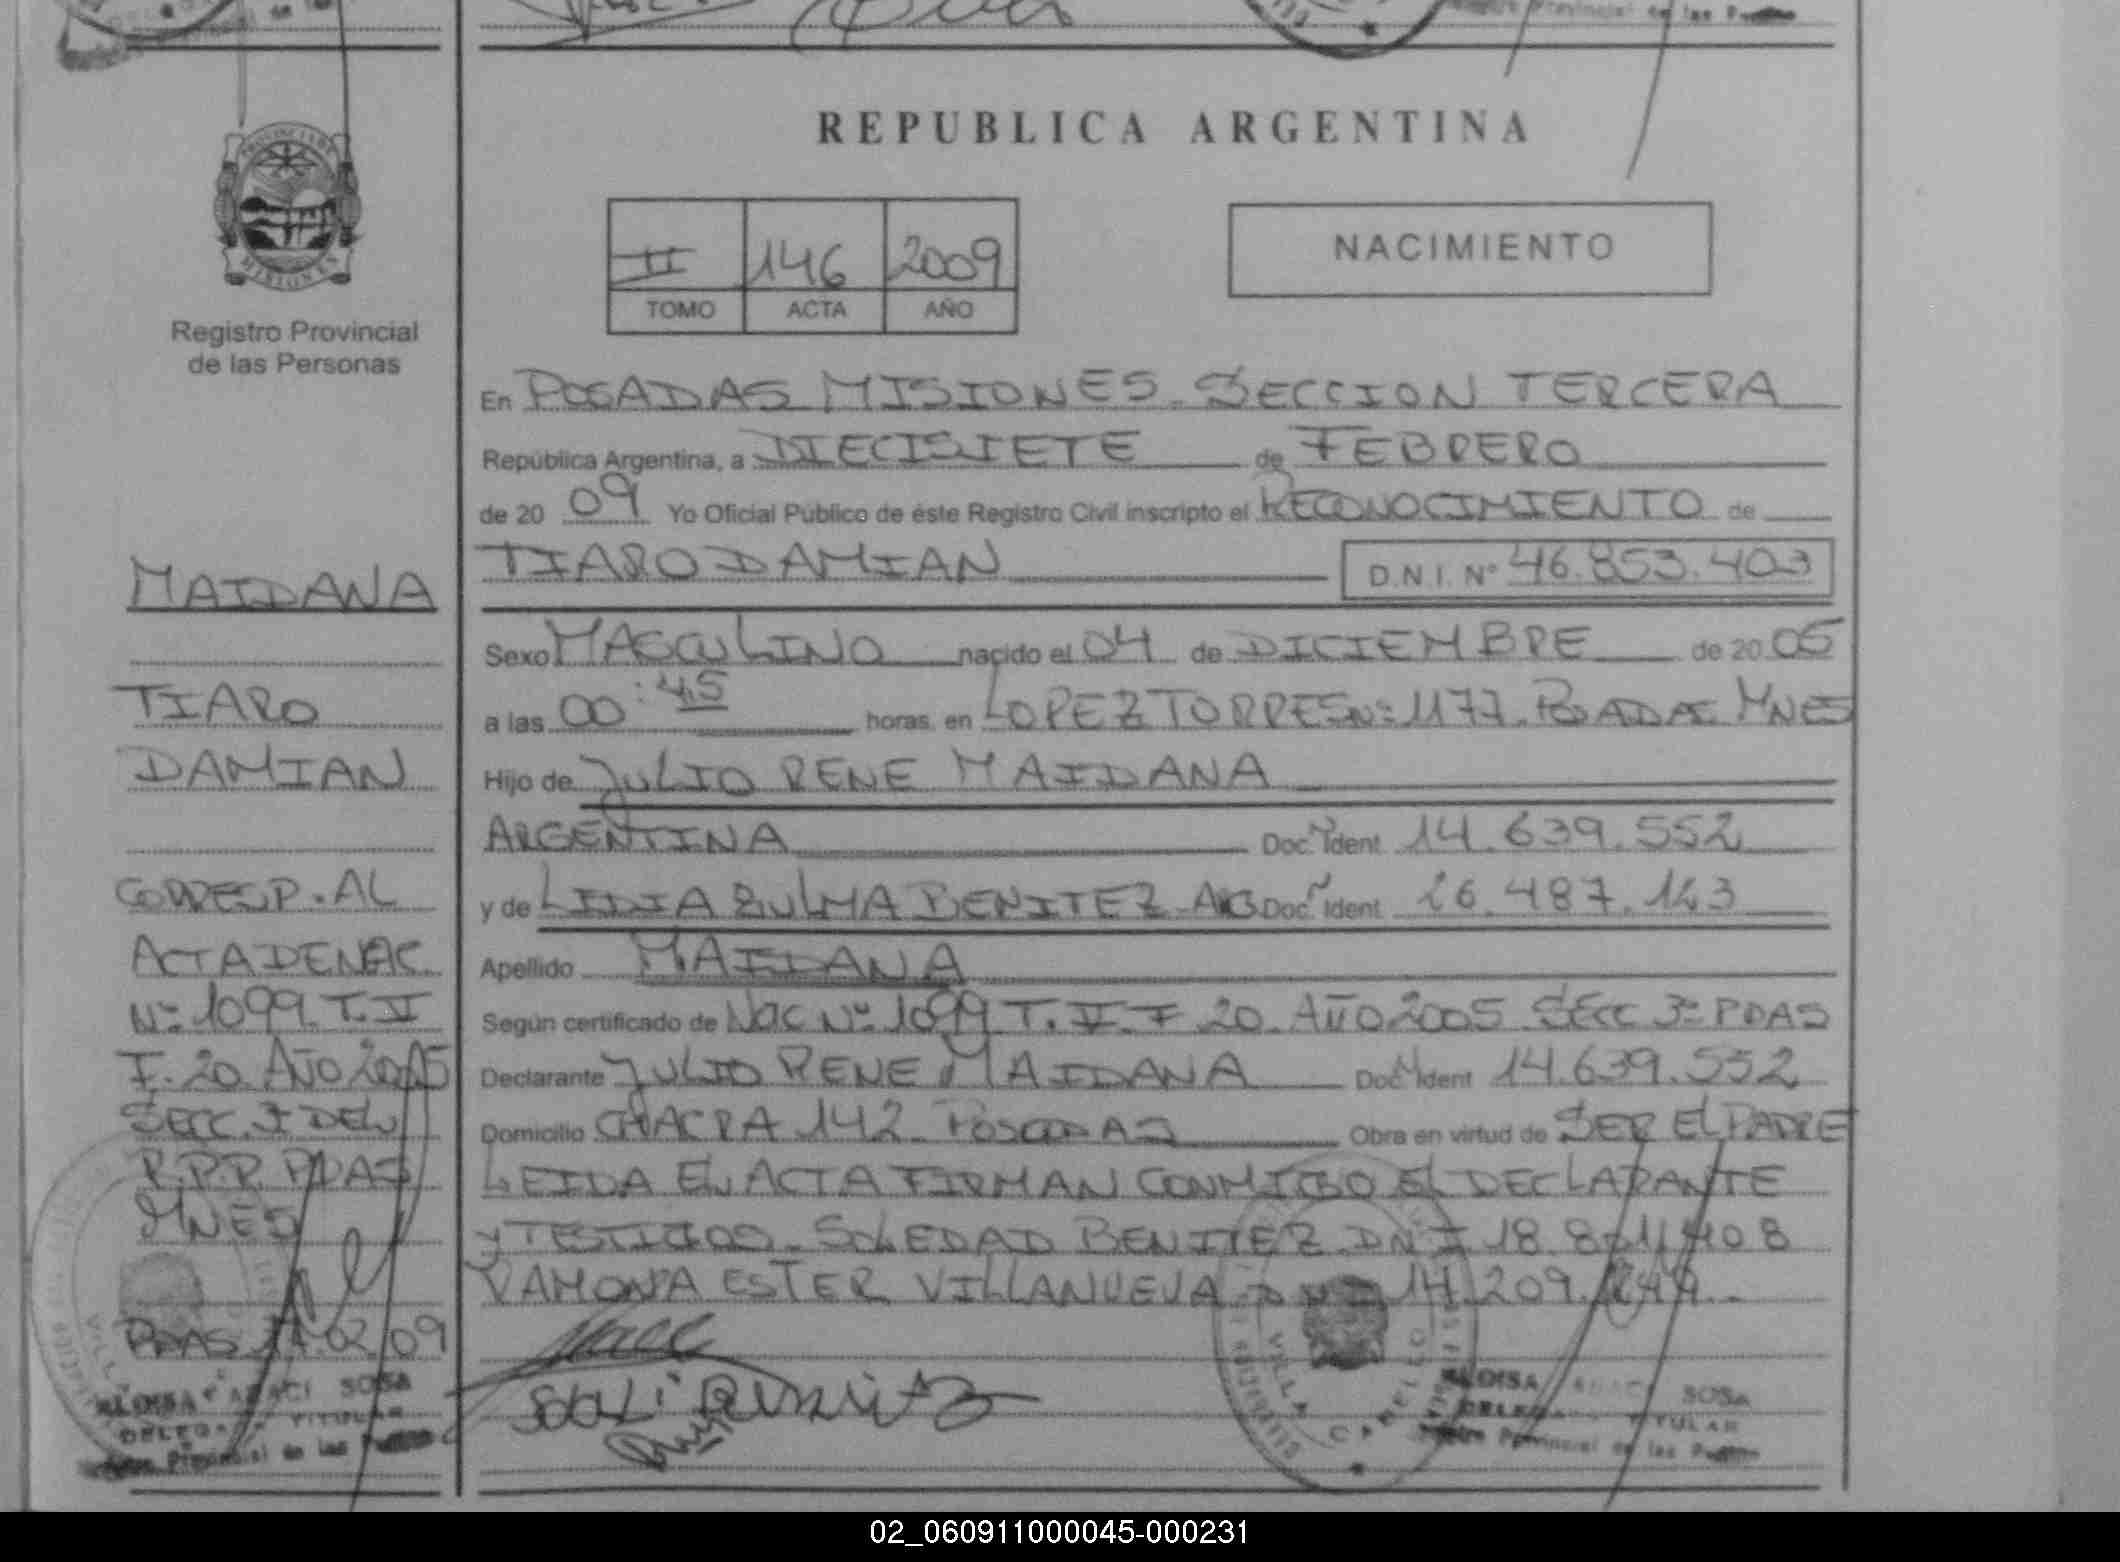 REPUBLICA ARGENTINA
II 146 2009
TOMO ACTA AÑO
NACIMIENTO
Registro Provincial
de las Personas
MAIDANA
TIARO
DAMIAN
CORRESP. AL
ACTA DE NAC
Nº 1099 T. II
F. 20 AÑO 2005
SECC. 3 DEL
R.P.P. PDAS
MNES
PDAS 17.02.09
SOSA
TITULAR
Provincial de las
En POSADAS MISIONES. SECCION TERCERA
República Argentina, a DIECISIETE de FEBRERO
de 20 09 Yo Oficial Público de éste Registro Civil inscripto el RECONOCIMIENTO de
TIARO DAMIAN D.N.I. Nº 46.853.403
Sexo MASCULINO nacido el 04 de DICIEMBRE de 20 05
a las 00:45 horas, en LOPEZ TORRES Nº 1177. POSADAS MNES
Hijo de JULIO RENE MAIDANA
ARGENTINA Doc. Ident 14.639.552
y de LIDIA ZULMA BENITEZ - ARG Doc. Ident 26.487.143
Apellido MAIDANA
Según certificado de NAC Nº 1099 T. II. F 20 AÑO 2005 SECC 3º PDAS
Declarante JULIO RENE MAIDANA Doc. Ident 14.639.552
Domicilio CHACRA 142 POSADAS Obra en virtud de SER EL PADRE
LEIDA EL ACTA FIRMAN CONMIGO EL DECLARANTE
Y TESTIGOS. SOLEDAD BENITEZ DNI 18.8 408
RAMONA ESTER VILLANUEVA DNI 14.209.
VILLA CABELLO
SOSA
TITULAR
Provincial de las
02_060911000045-000231